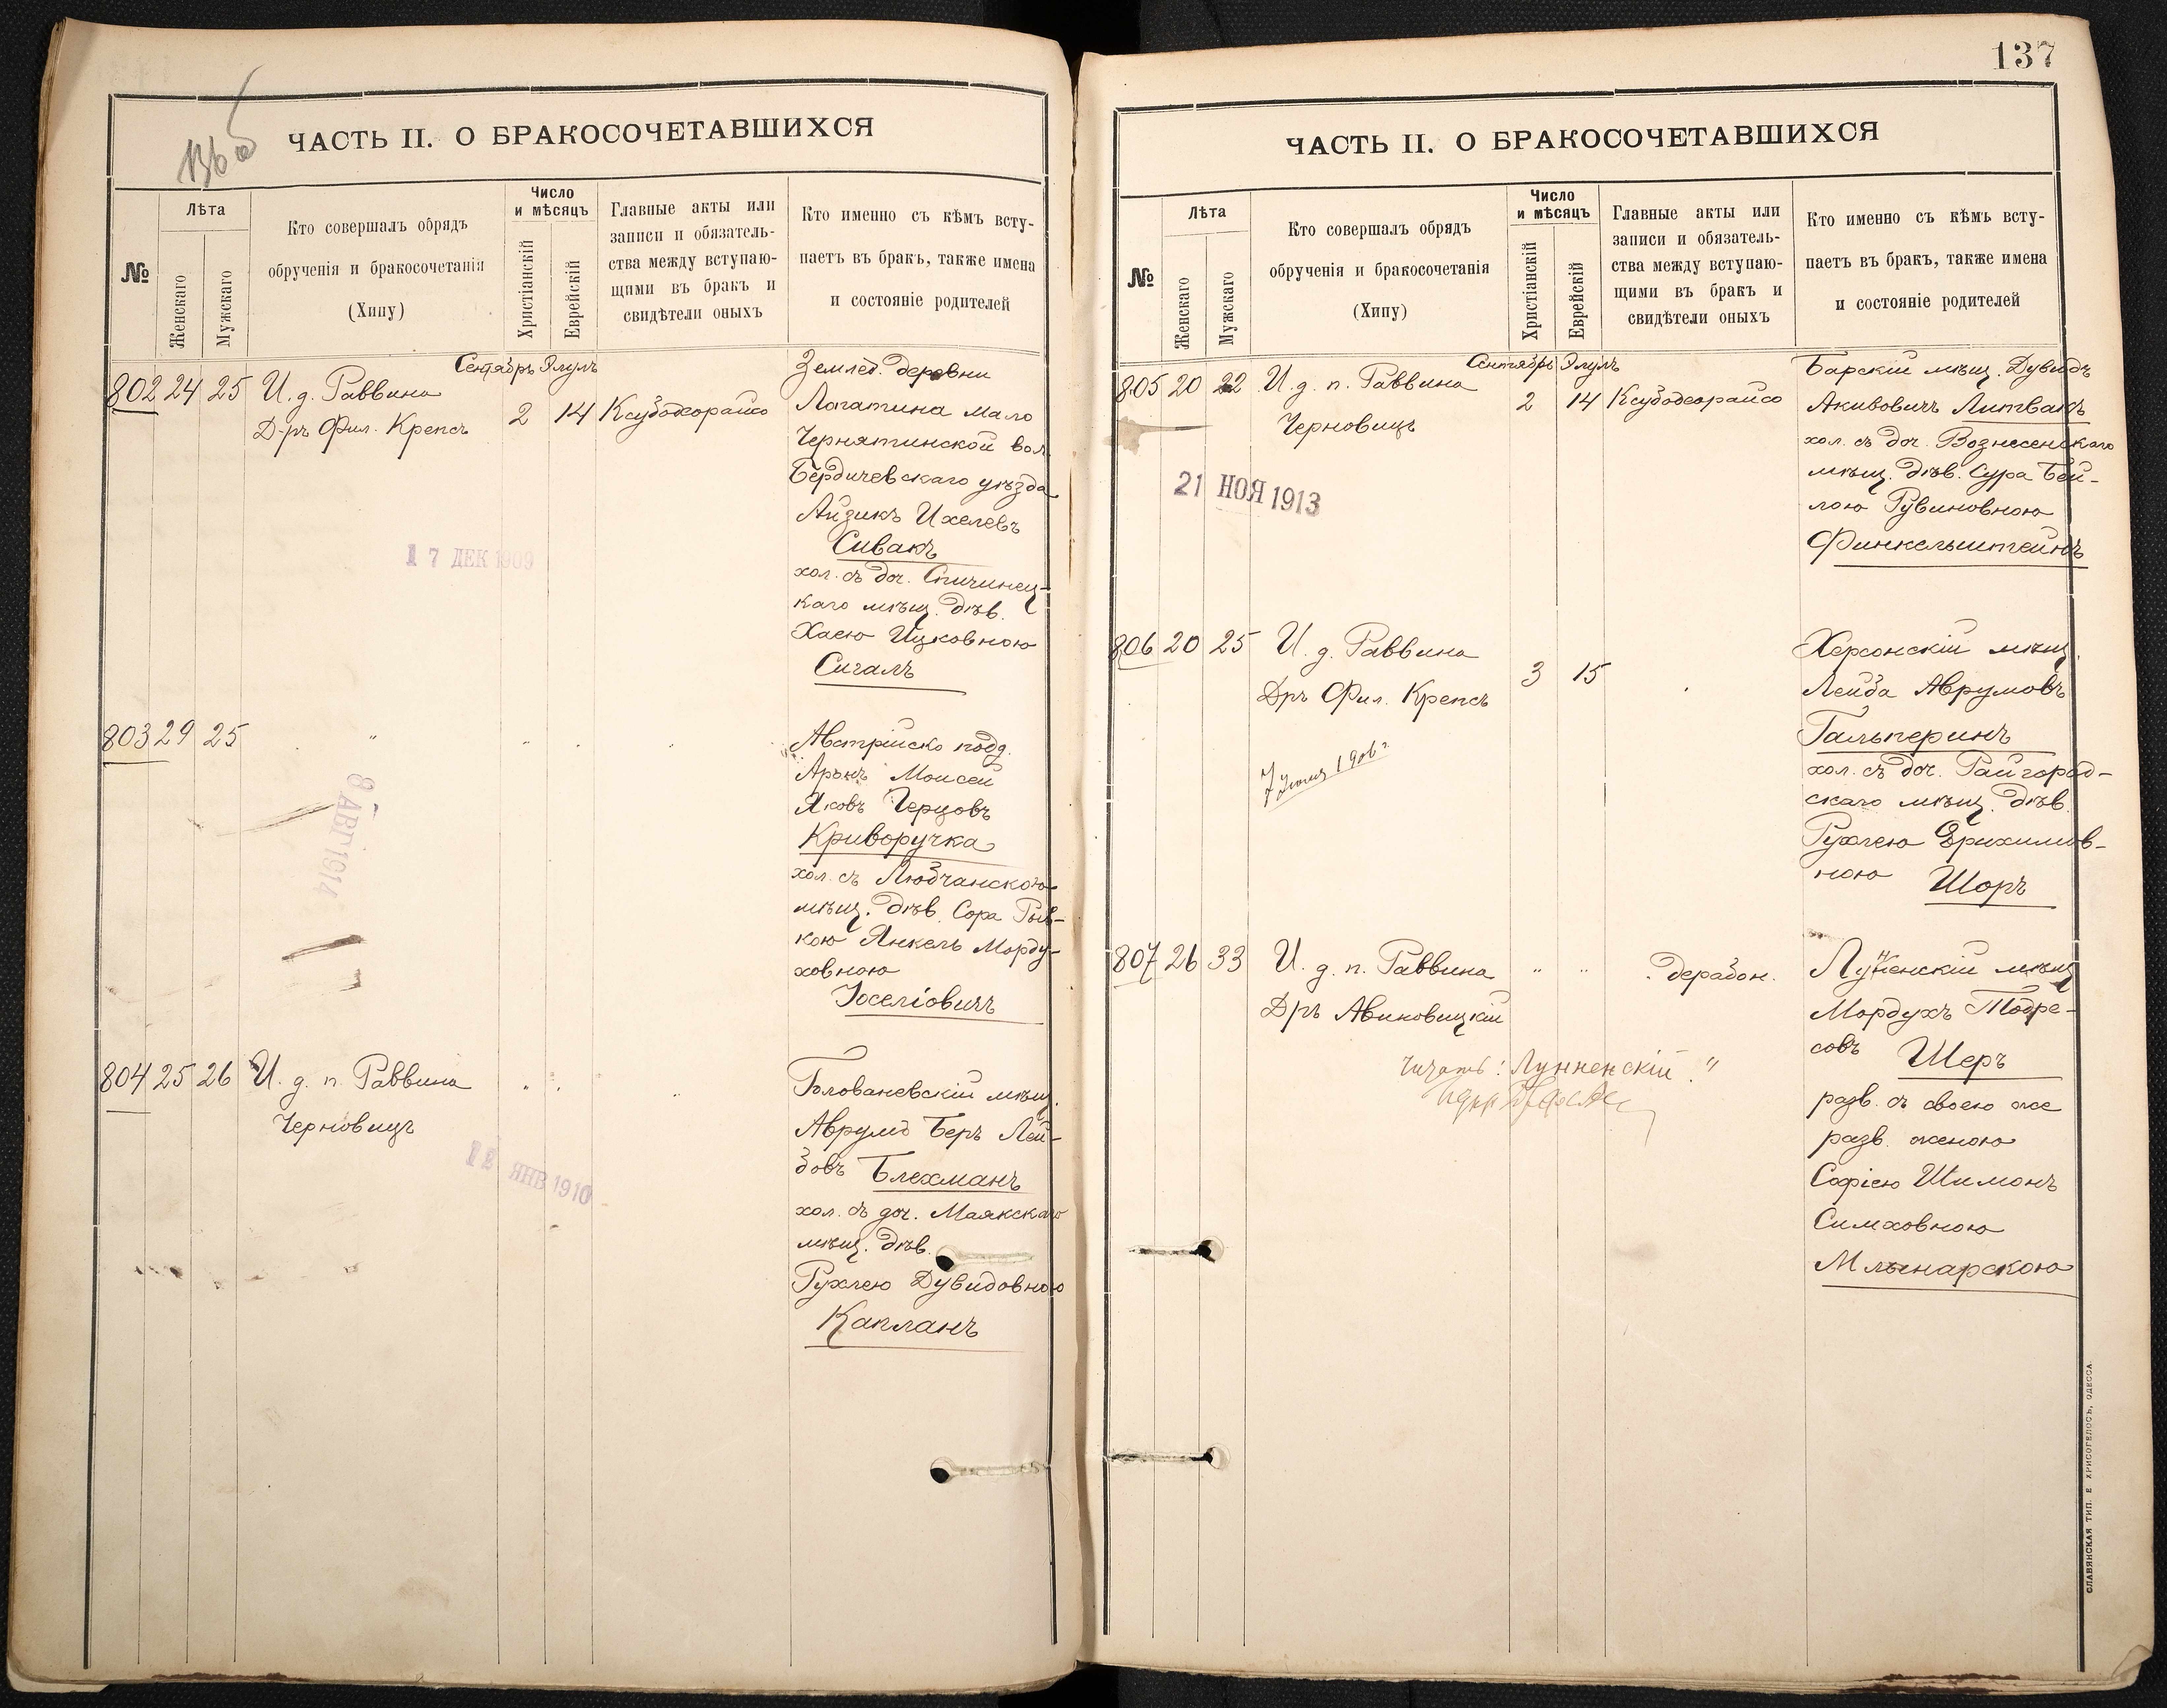 136 об
ЧАСТЬ II. О БРАКОСОЧЕТАВШИХСЯ
№
Лѣта
Женскаго
Мужскаго
Кто совершалъ обрядъ
обрученія и бракосочетанія
(Хипу)
Число
и мѣсяцъ
Христіанскій
Еврейскій
Главные акты или
записи и обязатель-
ства между вступаю-
щими въ бракъ и
свидѣтели оныхъ
Кто именно съ кѣмъ всту-
паетъ въ бракъ, также имена
и состояніе родителей
Сентябрь Элулъ
802 24 25 И. д. Раввина
Д-ръ Фил. Крепсъ
2 14
Землед. деревни
Лопатина Мало
Чернятинской вол.
Бердичевскаго уѣзда
Айзикъ Ихелевъ
Сивакъ
хол. съ доч. Спичинец-
каго мѣщ. дѣв.
Хаею Ицковною
Сигалъ
17 ДЕК 1909
803 29 25 " " " "
Австрійско подд.
Аронъ Моисей
Яковъ Герцовъ
Криворучка
хол. съ Любчанскою
мѣщ. дѣв. Сора Рыв-
кою Янкель Морду-
ховною
Іоселіовичъ
8 АВГ 1914
804 25 26 И. д. п. Раввина
Черновицъ
" " "
Голованевскій мѣщ.
Аврумъ Беръ Лей-
бовъ Блехманъ
хол. съ доч. Маякскаго
мѣщ. дѣв.
Рухлею Дувидовною
Капланъ
12 ЯНВ 1910
137
ЧАСТЬ II. О БРАКОСОЧЕТАВШИХСЯ
№
Лѣта
Женскаго
Мужскаго
Кто совершалъ обрядъ
обрученія и бракосочетанія
(Хипу)
Число
и мѣсяцъ
Христіанскій
Еврейскій
Главные акты или
записи и обязатель-
ства между вступаю-
щими въ бракъ и
свидѣтели оныхъ
Кто именно съ кѣмъ всту-
паетъ въ бракъ, также имена
и состояніе родителей
Сентябрь Элулъ
805 20 22 И. д. п. Раввина
Черновицъ
2 14
Барскій мѣщ. Дувидъ
Акивовичъ Литвакъ
хол. съ доч. Вознесенскаго
мѣщ. дѣв. Сура Бей-
лою Рувиновною
Финкельштейнъ
21 НОЯ 1913
806 20 25 И. д. Раввина
Дръ Фил. Крепсъ
3 15 "
Херсонскій мѣщ.
Лейба Аврумовъ
Гальперинъ
хол. съ доч. Райгород-
скаго мѣщ. дѣв.
Рухлею Эрихимов-
ною Шоръ
807 26 33 И. д. п. Раввина
Дръ Авиновицкій
" " дерабон.
мѣщ
Мордухъ Тодре-
совъ Шеръ
разв. съ своею же
разв. женою
Софією Шимонъ
Симховною
Млынарскою
Читать: Лунненскій "
СЛАВЯНСКАЯ ТИП. Е. ХРИСОГЕЛОСЪ, ОДЕССА.